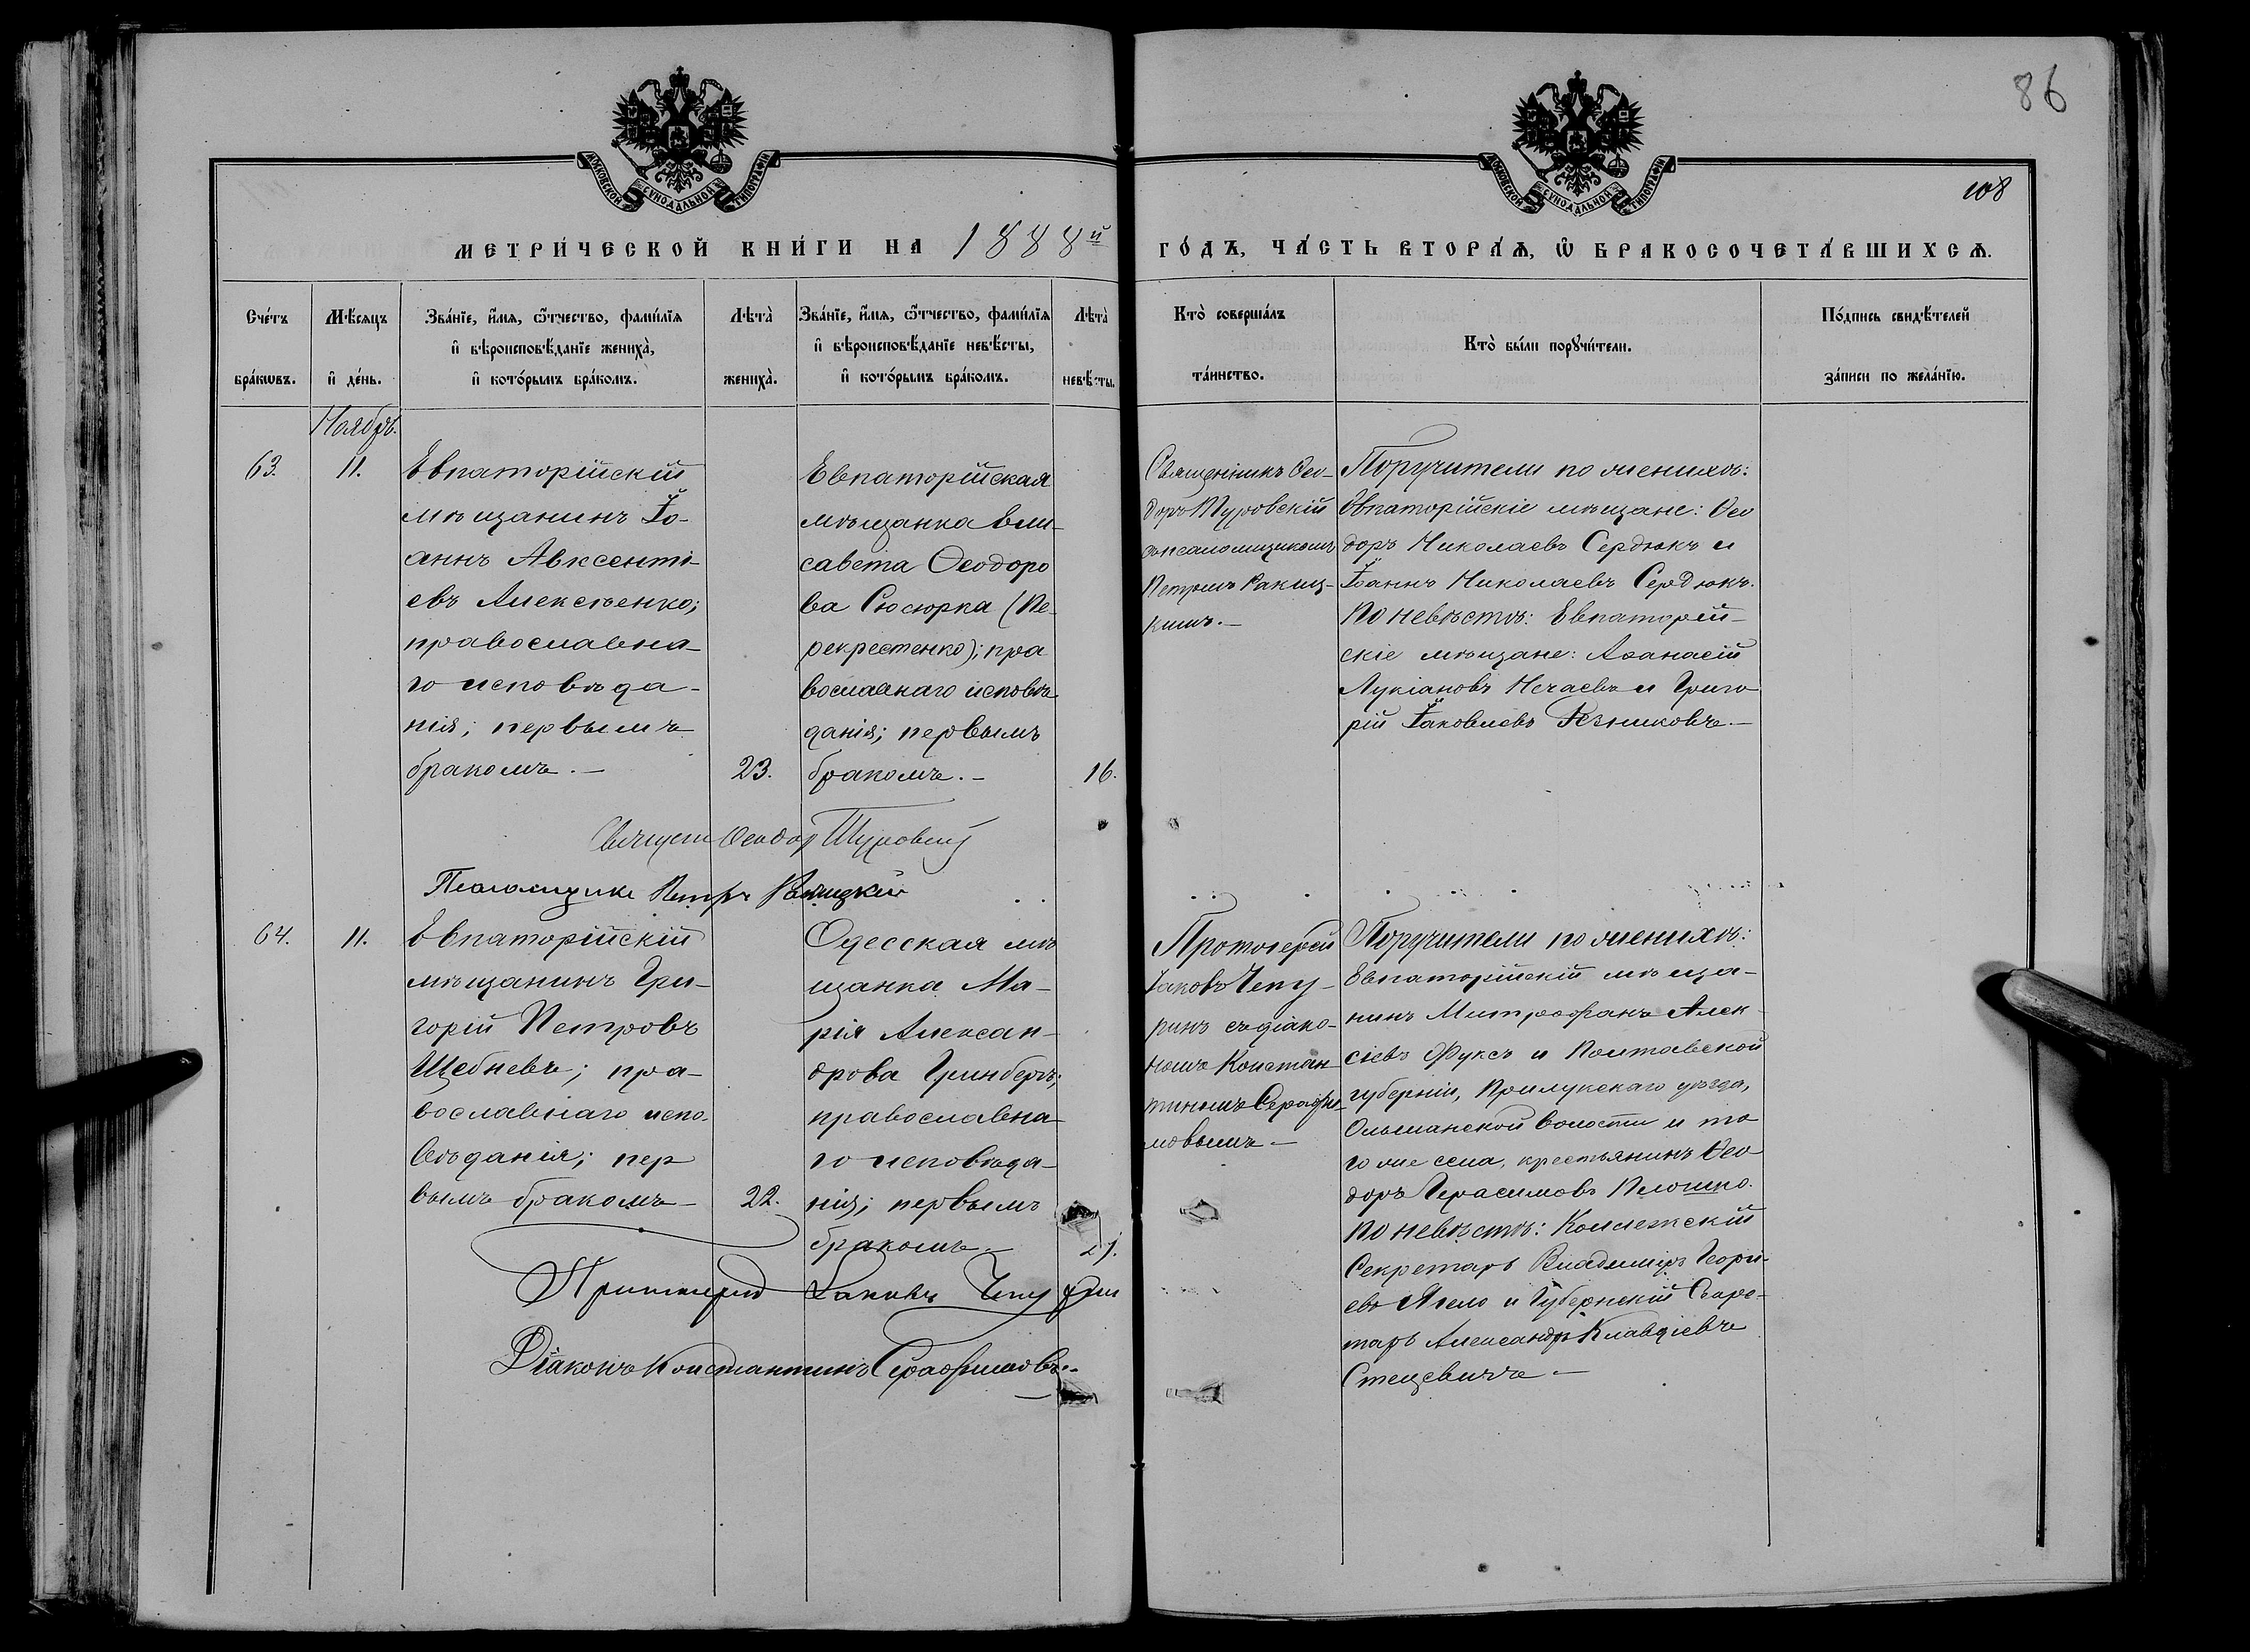 86
108
МОСКОВСКОЙ СѴНОДАЛЬНОЙ ТИПОГРАФІИ
МОСКОВСКОЙ СѴНОДАЛЬНОЙ ТИПОГРАФІИ
МЕТРИ́ЧЕСКОЙ КНИ́ГИ НА 1888й ГО́ДЪ, ЧА́СТЬ ВТОРА́Ѧ, Ѡ҆ БРАКОСОЧЕТА́ВШИХСѦ.
Сче́тъ
бра́кωвъ.
Мѣ́сѧцъ
и҆ де́нь.
Зва́нїе, и҆́мѧ, ѻ҆́тчество, фами́лїѧ
и҆ вѣроисповѣ́данїе жениха̀,
и҆ кото́рымъ бра́комъ.
Лѣта̀
жениха̀.
Зва́нїе, и҆́мѧ, ѻ҆́тчество, фами́лїѧ
и҆ вѣроисповѣ́данїе невѣ́сты,
и҆ кото́рымъ бра́комъ.
Лѣта̀
невѣ́сты.
Кто̀ соверша́лъ
та́инство.
Кто̀ бы́ли порꙋчи́тели.
По́дпись свидѣ́телей
за́писи по жела́нїю.
Ноябрь.
63.
11.
Евпаторійскій
мѣщанинъ Іо-
аннъ Авксенті-
евъ Алексѣенко;
православна-
го исповѣда-
нія; первымъ
бракомъ.—
23.
Евпаторійская
мѣщанка Ели-
савета Ѳеодоро
ва Сюсюрка (Пе-
рекрестенко); пра
вославнаго исповѣ
данія; первымъ
бракомъ.—
16.
Священникъ Ѳео-
доръ Туровскій
съ псаломщикомъ
Петромъ Ракиц-
кимъ.—
Поручители по женихѣ:
Евпаторійскіе мѣщане: Ѳео
доръ Николаевъ Сердюкъ и
Іоаннъ Николаевъ Сердюкъ.
По невѣстѣ: Евпаторій-
скіе мѣщане: Аѳанасій
Лукіановъ Нечаевъ и Григо
рій Іаковлевъ Резниковъ.—
Священ Ѳеодор Туровскій
Псаломщикъ Петръ Ракицкій
64.
11.
Евпаторійскій
мѣщанинъ Гри-
горій Петровъ
Щебневъ; пра-
вославнаго испо-
вѣданія; пер
вымъ бракомъ—
22.
Одесская мѣ
щанка Ма-
рія Алексан-
дрова Гринбергъ;
православна-
го исповѣда-
нія; первымъ
бракомъ.—
21.
Протоіерей
Іаковъ Чепу-
ринъ съ діако-
номъ Констан-
тиномъ Серафи-
мовымъ—
Поручители по женихѣ:
Евпаторійскій мѣща-
нинъ Митрофанъ Алек-
сіевъ Фуксъ и Полтавской
губерніи, Прилукскаго уѣзда,
Ольшанской волости и то
го же села, крестьянинъ Ѳео
доръ Герасимовъ
По невѣстѣ: Коллежскій
Секретарь Владиміръ Георгі-
евъ и Губернскій Секре-
тарь Александръ Клавдіевъ
Стецевичъ—
Протоіерей Іаковъ Чепурин
Діаконъ Константинъ Серафимовъ.—